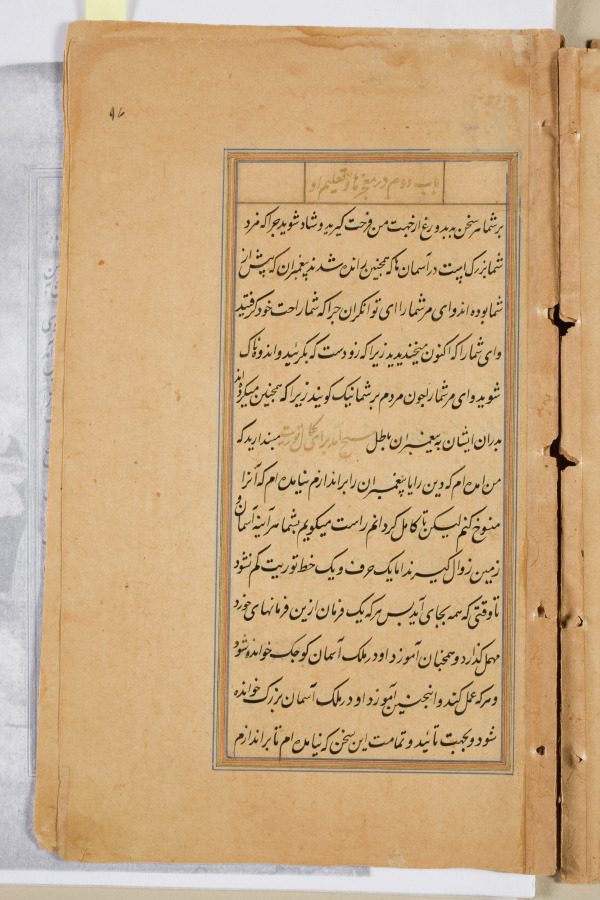 ۹۶
باب دوم در معجزها و تعلیم او
بر شما هر سخن بد بدروغ از جهت من فرحت گیرید و شاد شوید چرا که مزد
شما بزرک است در آسمان ها که همچنین رانده شدند پیغمبران که پیش از
شما بوده اند وای مر شما را ای توانکران چرا که شما راحت خود کرفتید
وای شما را که اکنون میخندیدید زیرا که زودست که بکرئید و اندوهناک
شوید وای مر شما را چون مردم بر شما نیک کویند زیرا که همچنین میکرده اند
پدران ایشان به پیغمبران باطل مسیح آمد برای کمال توریت مپندارید که
من آمده ام که دین را یا پیغمبران را براندازم نیامده ام که آنرا
منسوخ کنم لیکن تا کامل کردانم راست میکویم بشما هر آینه آسمان و
زمین زوال کیرند اما یک حرف و یک خط توریت کم نشود
تا وقتی که همه بجای آید پس هر که یک فرمان ازین فرمانهای خورد
مهمل کذارد و همچنان آموزد او در ملک آسمان کوچک خوانده شود
و هر که عمل کند و اینچنین آموزد او در ملک آسمان بزرک خوانده
شود و بجهت تائید و تمامت این سخن که نیامده ام تا براندازم